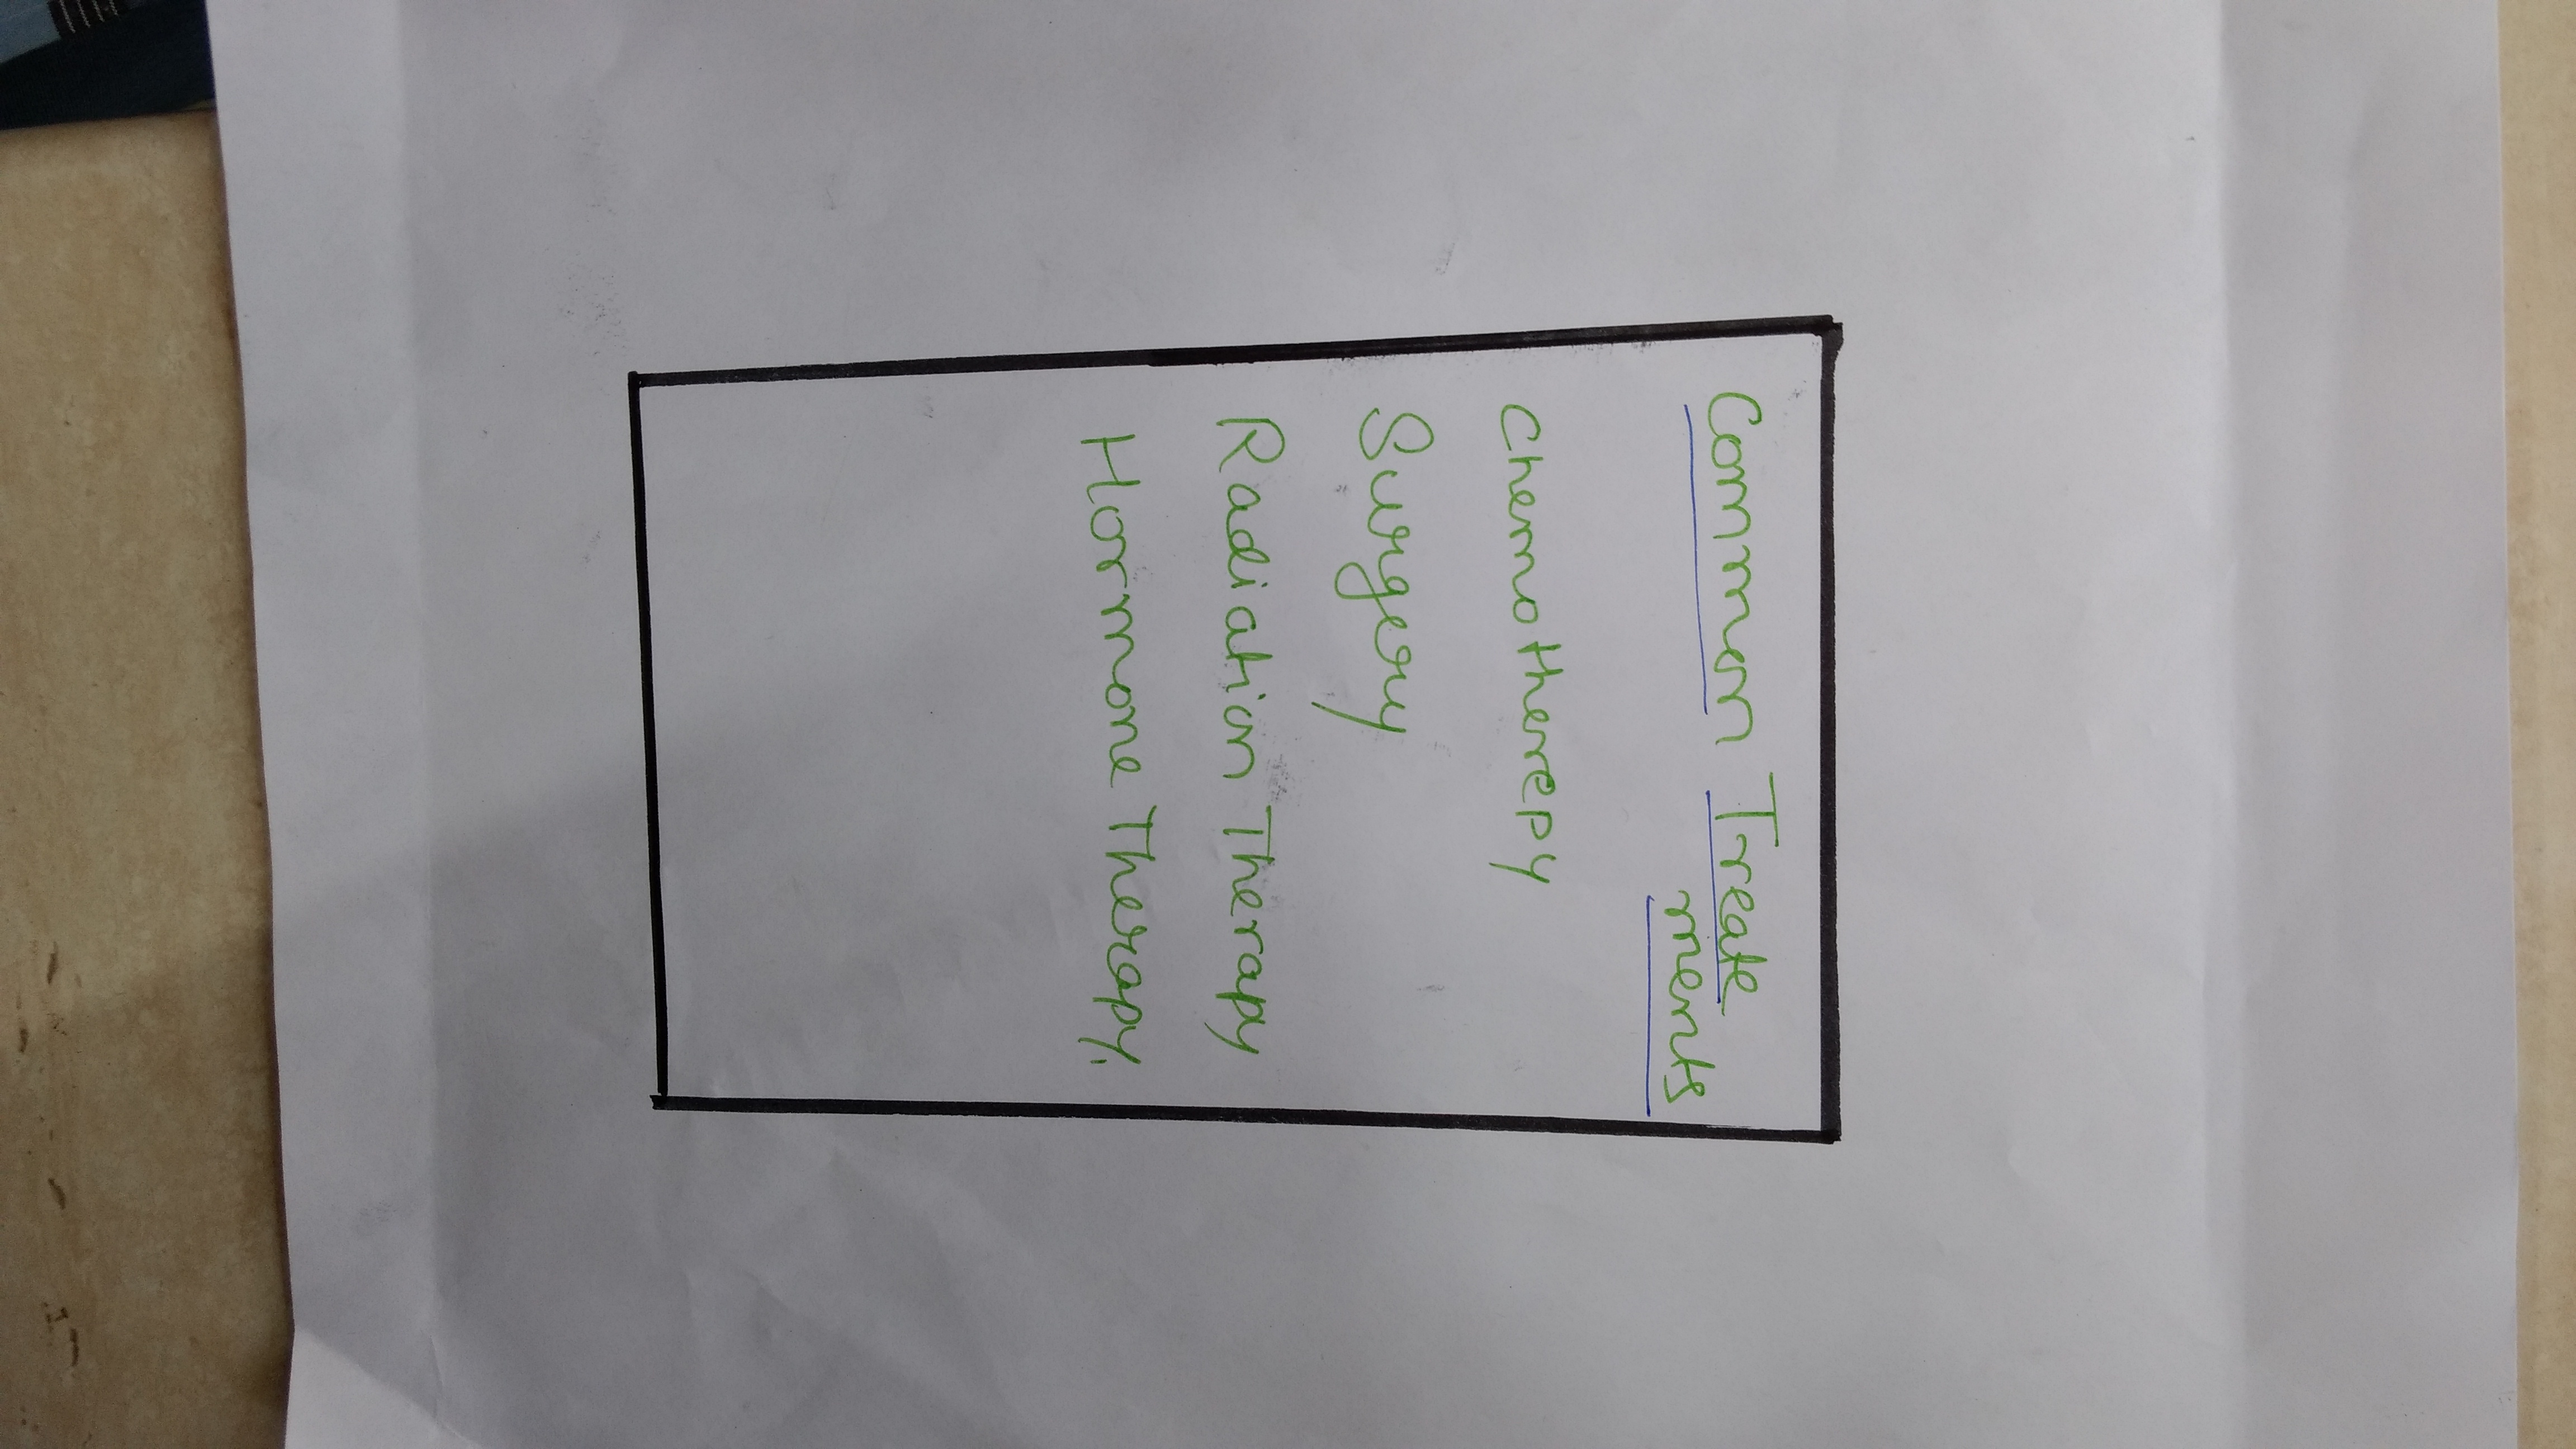 Common Treate
ments
Chemotherepy
Surgery
Radiation Therapy
Hormone Therapy.